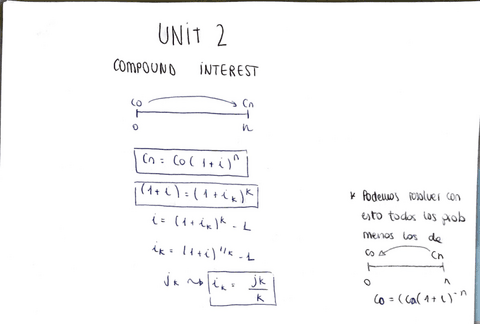 UNIT 2
COMPOUND INTEREST
Co Cn
0 n
Cn = Co (1+i)^n
(1+i) = (1+i_k)^k
i = (1+i_k)^k - 1
i_k = (1+i)^1/k - 1
j_k ⇝ i_k = j_k/k
* Podemos resolver con
esto todos los prob
menos los de
Co Cn
0 n
Co = (Ca(1+i)^-n